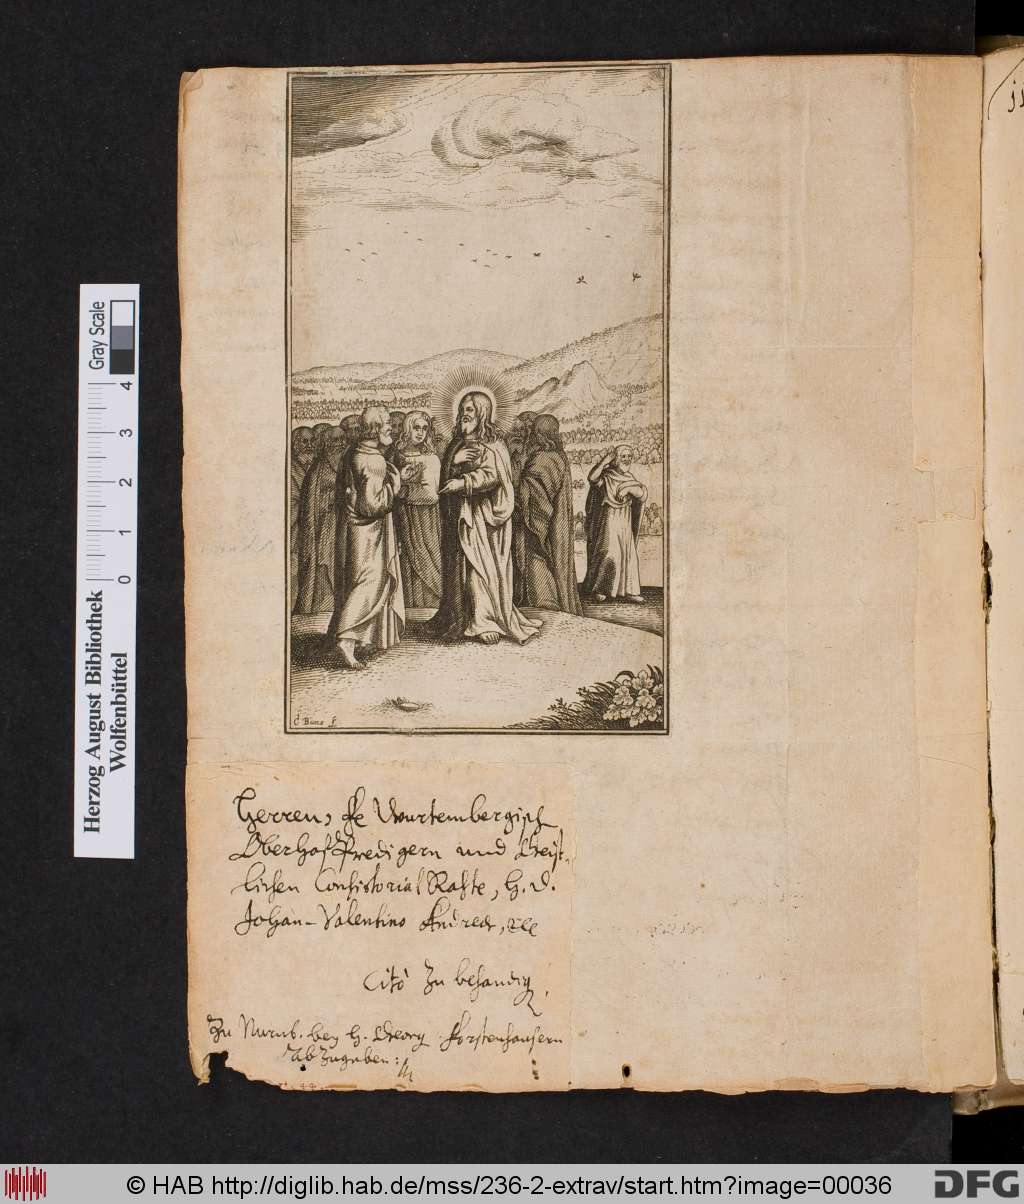 C Buno f.
Herren, Fe Würtembergisch
Oberhof Predigern und Geist-
lichen Consistorial Rahte, H. D.
Johan Valentino Andreæ, etc
Citò Zu behändig
Zu Nurnb. bey H. Georg Forstenhausern
abzugeben:
Gray Scale
4 3 2 1 0
Herzog August Bibliothek
Wolfenbüttel
© HAB http://diglib.hab.de/mss/236-2-extrav/start.htm?image=00036
DFG